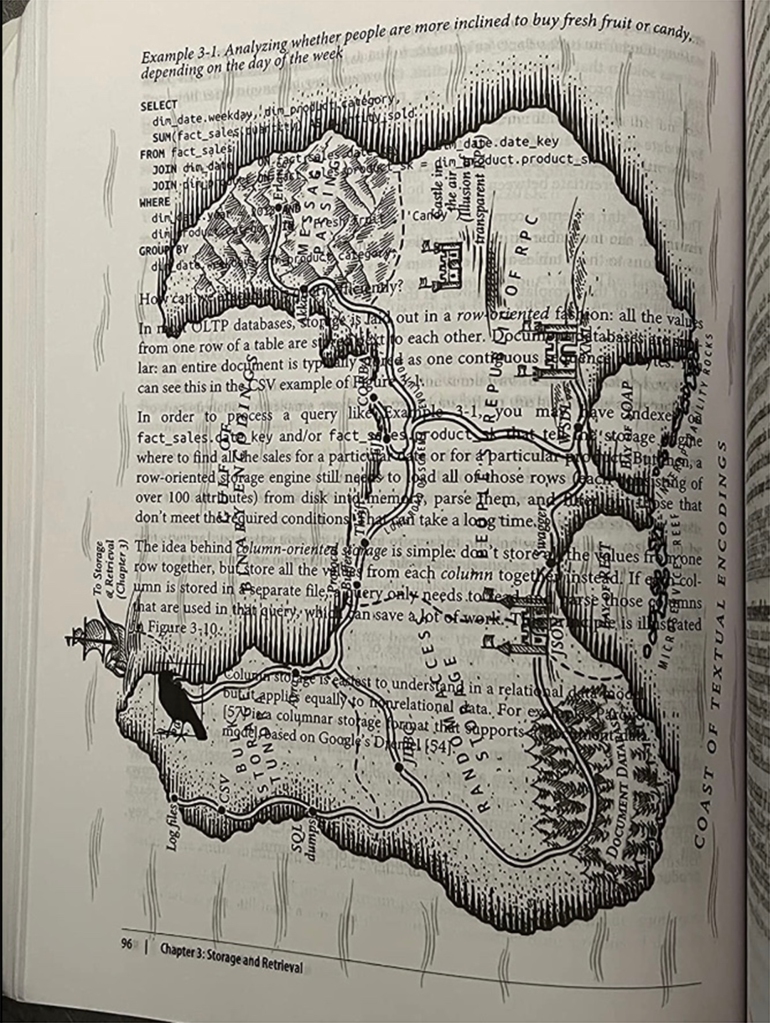 Example 3-1. Analyzing whether people are more inclined to buy fresh fruit or candy,
depending on the day of the week
SELECT
dim_date.weekday, dim_product.category,
SUM(fact_sales.quantity) AS quantity_sold
FROM fact_sales
JOIN dim_date ON fact_sales.date_key = dim_date.date_key
JOIN dim_product ON fact_sales.product_sk = dim_product.product_sk
WHERE
dim_date.year
dim_product.category IN 'Fresh fruit', 'Candy'
GROUP BY
dim_date.weekday, dim_product.category;
How can we efficiently?
In most OLTP databases, storage is laid out in a row-oriented fashion: all the values
from one row of a table are stored next to each other. Document databases
lar: an entire document is typically stored as one continuous bytes.
can see this in the CSV example of Figure 3-1.
In order to process a query like Example 3-1, you may have indexes
fact_sales.date_key and/or fact_sales.product_sk that tell storage engine
where to find all the sales for a particular date or for a particular product. But then, a
row-oriented storage engine still needs to load all of those rows (each consisting of
over 100 attributes) from disk into memory, parse them, and those that
don't meet the required conditions. That can take a long time.
The idea behind column-oriented storage is simple: don't store all the values from one
row together, but store all the values from each column together instead. If each col-
umn is stored in a separate file, query only needs to read and parse those columns
that are used in that query, which can save a lot of work. This principle is illustrated
in Figure 3-10.
Column storage is easiest to understand in a relational data model,
but it applies equally to nonrelational data. For example, Parquet
[57] is a columnar storage format that supports a document data
model, based on Google's Dremel [54].
MESSAGE
PASSING
Erlang
Akka
Castle in
the air
(Illusion of
transparent RPC)
PEOPLE'S REPUBLIC OF RPC
CORBA
WSDL
Swagger
JSON
Thrift
Protocol
Buffers
Avro
GULF OF
BINARY ENCODINGS
BAY OF SOAP
BAY OF REST
MICROSERVICE REEF
COAST OF TEXTUAL ENCODINGS
To Storage
& Retrieval
(Chapter 3)
BULK
STORAGE
TUNDRA
RANDOM ACCESS
STORAGE
DOCUMENT DATABASE
Log files
CSV
SQL
dumps
96 | Chapter 3: Storage and Retrieval